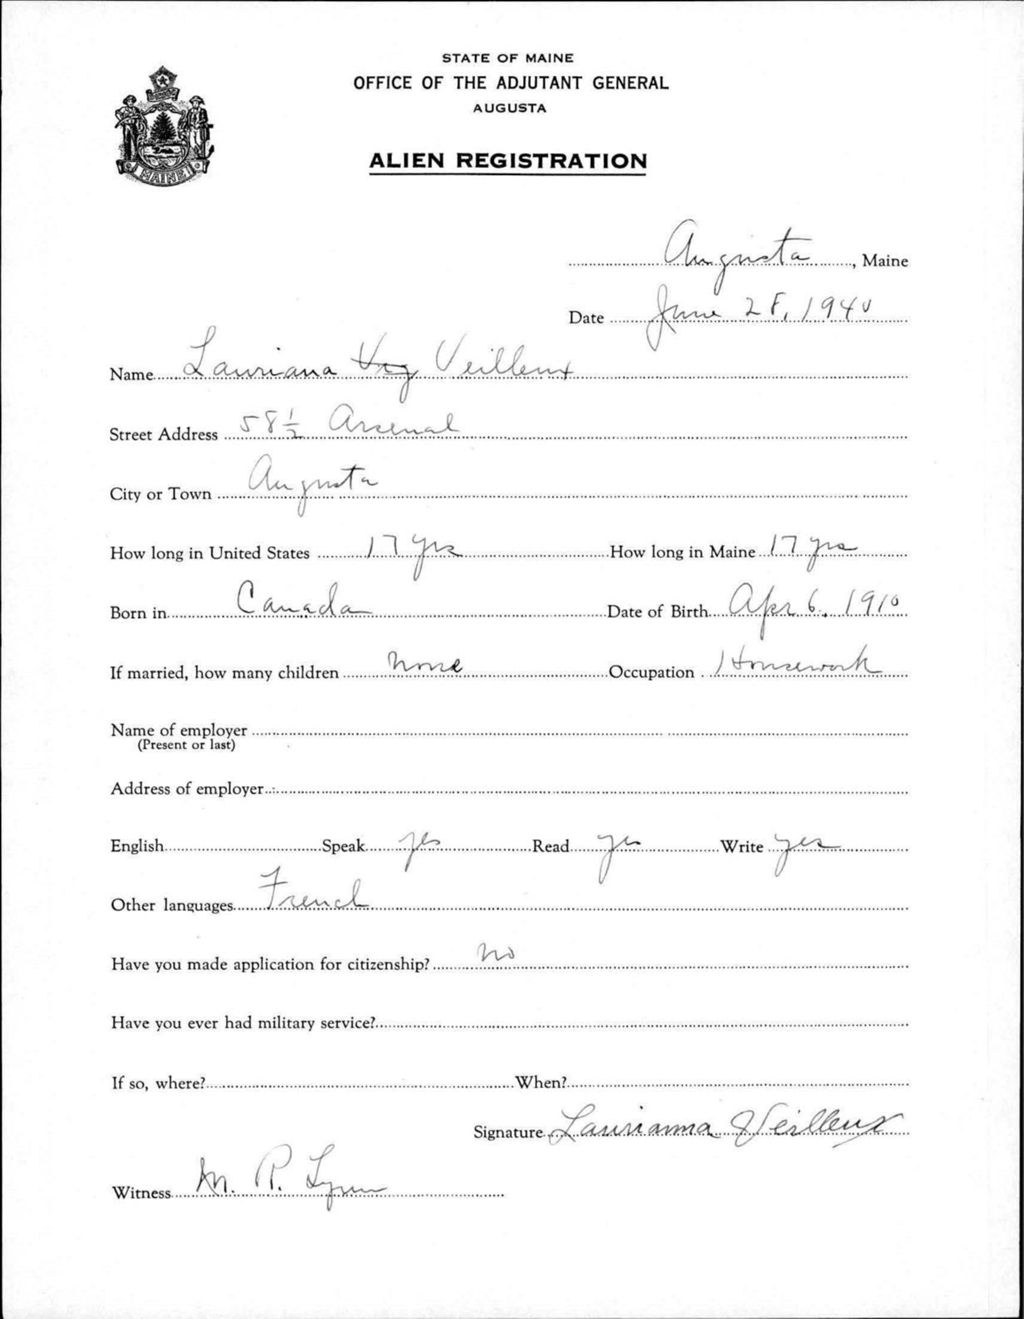 STATE OF MAINE
OFFICE OF THE ADJUTANT GENERAL
AUGUSTA
ALIEN REGISTRATION
MAINE
Augusta, Maine
Date June 28, 1940
Name Lauriana Veilleux
Street Address 58 1/2 Arsenal
City or Town Augusta
How long in United States 17 yrs How long in Maine 17 yrs
Born in Canada Date of Birth Apr 6, 1910
If married, how many children None Occupation Housework
Name of employer
(Present or last)
Address of employer
English Speak yes Read yes Write yes
Other languages French
Have you made application for citizenship? no
Have you ever had military service?
If so, where? When?
Signature Laurianna Veilleux
Witness M. R. Lynn